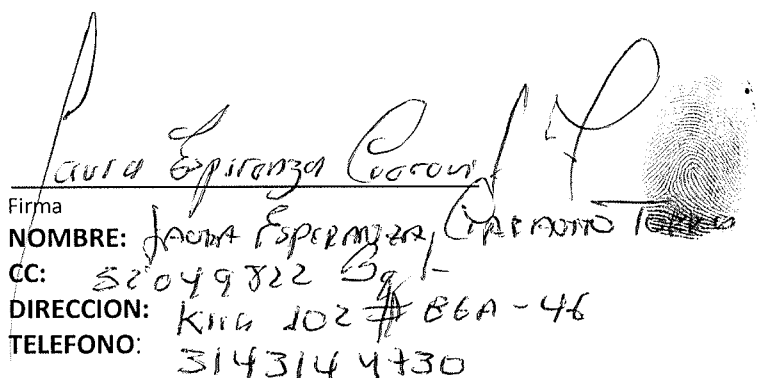 Laura Esperanza
Firma
NOMBRE: Laura Esperanza Torres
CC: 52049822
DIRECCION: 102 # 86A-46
TELEFONO: 3143144730